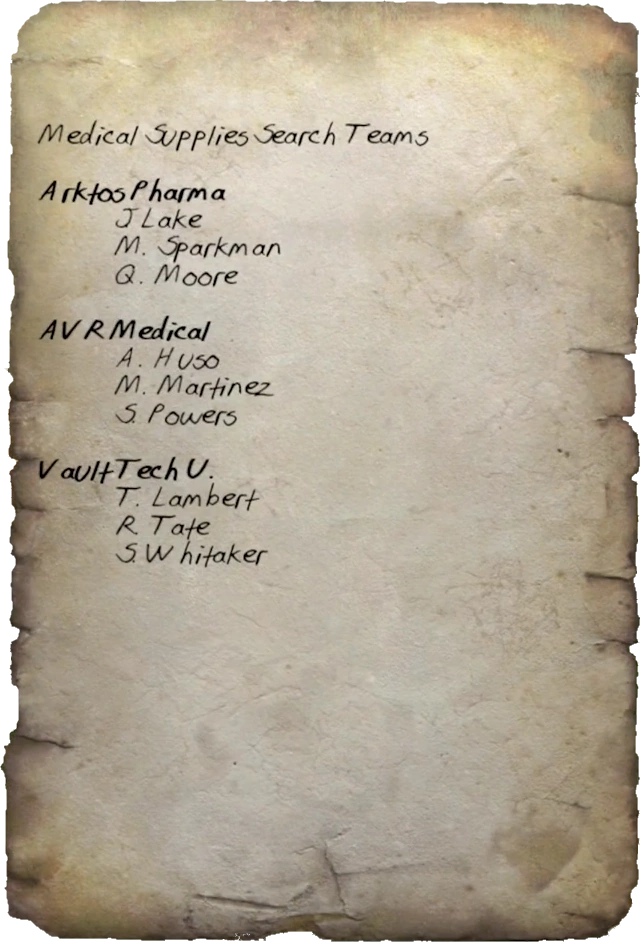 Medical Supplies Search Teams
Arktos Pharma
J Lake
M. Sparkman
Q. Moore
AVR Medical
A. Huso
M. Martinez
S. Powers
VaultTech U.
T. Lambert
R. Tate
S. Whitaker